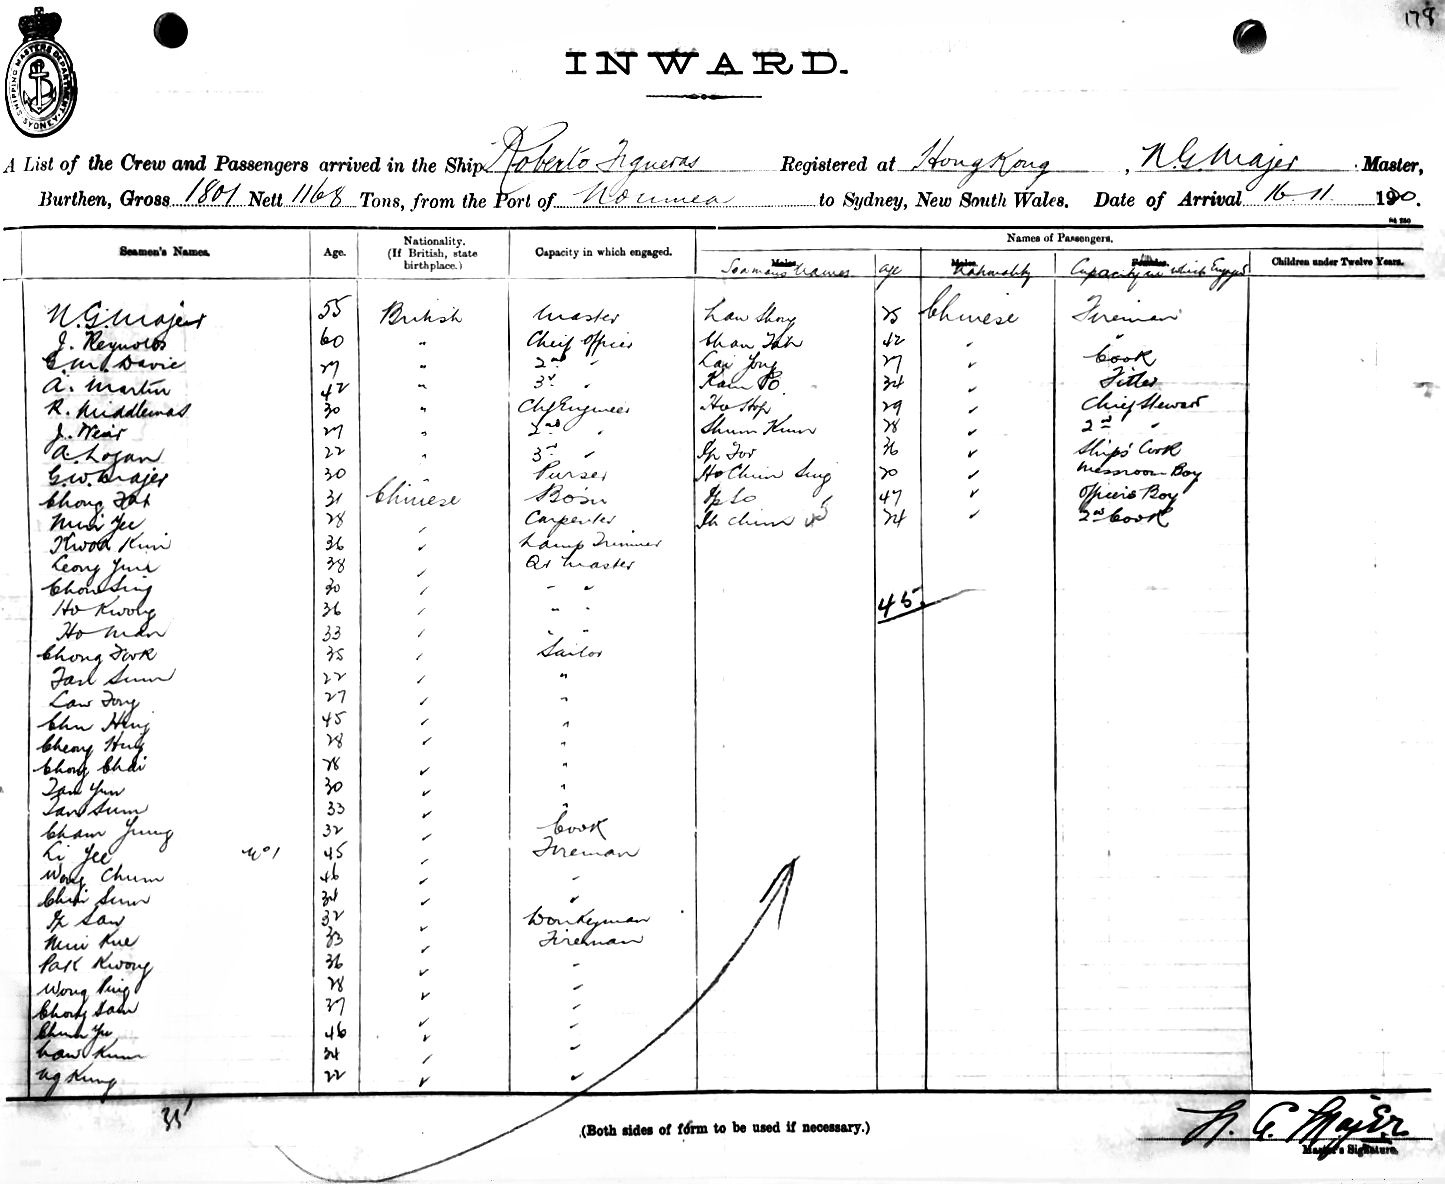 178
SHIPPING MASTERS DEPARTMENT SYDNEY
INWARD.
A List of the Crew and Passengers arrived in the Ship Roberto Figueras Registered at Hong Kong, N. G. Majer Master,
Burthen, Gross 1801 Nett 1168 Tons, from the Port of Noumea to Sydney, New South Wales. Date of Arrival 16-11 1920.
Seamen's Names. Age. Nationality. (If British, state birthplace.) Capacity in which engaged. Names of Passengers.
Males. Males. Females. Children under Twelve Years.
Seamans Names age Nationality Capacity in which Engaged
N. G. Majer 55 British Master Law Shong 25 Chinese Fireman
J. Reynolds 60 " Cheif Officer Chan Tah 42 " "
G. M. Davie 27 " 2nd " Lai Yong 27 " Cook
A. Martin 42 " 3rd " Kam Po 34 " Fitter
R. Middlemas 30 " Chf Engineer Ho Hop 29 " Chief Steward
J. Weir 27 " 2nd " Shum Kum 28 " 2nd "
A. Logan 22 " 3rd " Ip For 36 " Ships Cook
G. W. Majer 30 " Purser Ho Chim Sing 20 " Messroom Boy
Chong Tat 31 Chinese Bosn Ip So 47 " Officers Boy
Mui Yee 28 " Carpenter Ih Chim 24 " 2nd Cook
Kwok Kui 36 " Lamp Trimmer
Leong Yun 38 " Qr Master
Chow Sing 30 " " "
Ho Kwong 36 " " "
45
Ho Man 33 " " "
Chong Fook 35 " Sailor
Tan Sum 22 " "
Law Tong 27 " "
Chu Hing 45 " "
Cheong Hing 28 " "
Chong Chai 28 " "
Tan Yun 30 " "
Tan Sum 33 " "
Cham Yung 32 " Cook
Li Yee No 1 45 " Fireman
Wong Chum 46 " "
Chui Sum 34 " "
Ip San 32 " Donkeyman
Mui Kue 33 " Fireman
Pak Kwong 36 " "
Wong Ping 28 " "
Chong Sam 37 " "
Chun Yu 46 " "
Law Kum 34 " "
Ng Kung 22 " "
35
(Both sides of form to be used if necessary.)
N. G. Majer
Master's Signature.